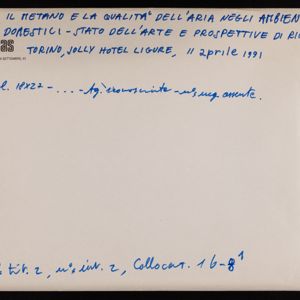 IL METANO E LA QUALITA' DELL'ARIA NEGLI AMBIEN
DOMESTICI - STATO DELL'ARTE E PROSPETTIVE DI RIC
TORINO, JOLLY HOTEL LIGURE, 11 aprile 1991
as
18x27 - .... - Ag. sconosciuta - neg. assente.
tit. 2, n° int. 2, Collocaz. 16-8